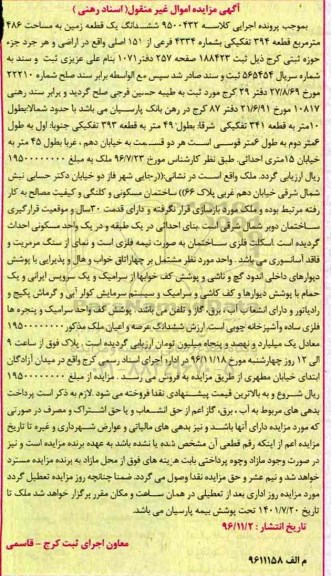 آگهی مزایده اموال غیر منقول( اسناد رهنی )
بموجب پرونده اجرایی کلاسه ۹۵۰۰۴۳۲ ششدانگ یک قطعه زمین به مساحت ۴۸۶
مترمربع قطعه ۳۹۴ تفکیکی بشماره ۴۳۳۴ فرعی از ۱۵۱ اصلی واقع در اراضی و هر جرد جزء
حوزه ثبتی کرج ذیل ثبت ۱۸۸۴۲۳ صفحه ۲۵۷ دفتر۱۰۷۱ بنام علی عزیزی ثبت و سند به
شماره سریال ۵۶۵۴۵۴ ثبت و سند صادر شد سپس مع الواسطه برابر سند صلح شماره ۲۲۲۱۰
۲۷/۸/۶۹ دفتر ۲۹ کرج مورد ثبت به طیبه حسین فرجی صلح گردید و برابر سند رهنی
۱۰۸۱۷ مورخ ۲۱/۶/۹۱ دفتر ۸۷ کرج در رهن بانک پارسیان می باشد با حدود شمالا:بطول
۱۰متر به قطعه ۳۴۱ تفکیکی شرقا: بطول ۴۹ متر به قطعه ۳۹۳ تفکیکی جنوبا: اول به طول
۶متر دوم به طول ۶متر قوسی است هر دو قسمت به خیابان دهم ، غربا بطول ۴۵ متر به
خیابان ۱۵متری احداثی. طبق نظر کارشناس مورخ ۹۶/۷/۲۳ ملک به مبلغ ۱۹۵۰۰۰۰۰۰۰۰
ریال ارزیابی گردد. ملک واقع است در نشانی:((رجایی شهر فاز دو خیابان دکتر حسابی نبش
شمال شرقی خیابان دهم غربی پلاک ۶۶)) ساختمان مسکونی و کلنگی و کیفیت مصالح به کار
رفته مرتبط بوده و ملک مورد بازسازی قرار نگرفته و دارای قدمت ۳۰سال و موقعیت قرارگیری
ساختمان دوبر شمال شرقی است بنای احداثی در یک طبقه و در یک واحد مسکونی احداث
گردیده است .اسکلت فلزی ساختمان به صورت نیمه فلزی است و نمای از سنگ مرمریت و
فاقد آسانسوری می باشد . واحد مورد نظر مشتمل بر چهاراتاق خواب و هال و پذیرایی با پوشش
دیوارهای داخلی اندود گچ و نقاشی و پوشش کف خوابها از سرامیک و یک سرویس ایرانی و یک
حمام با پوشش دیوارها و کف کاشی و سرامیک و سیستم سرمایش کولر آبی و گرمایش پکیج و
رادیاتور و دارای انشعاب آب، برق، گاز و تلفن می باشد. پوشش کف واحد سرامیک و پنجره ها
فلزی ساده وآشپزخانه چوبی است. ارزش ششدانگ عرصه و اعیان ملک مذکور ۱۹۵۰۰۰۰۰۰۰۰
معادل یک میلیارد و نهصد و پنجاه میلیون تومان ارزیابی گردیده است . پلاک فوق از ساعت ۹
الی ۱۲ روز چهارشنبه مورخ ۹۶/۱۱/۱۸ در اداره اجرای اسناد رسمی کرج واقع در میدان آزادگان
ابتدای خیابان مطهری از طریق مزایده به فروش می رسد . مزایده از مبلغ ۱۹۵۰۰۰۰۰۰۰۰
ریال شروع و به بالاترین قیمت پیشنهادی نقدا فروخته می شود. لازم به ذکر است پرداخت
بدهی های مربوط به آب ، برق، گاز اعم از حق انشعاب و یا حق اشتراک و مصرف در صورتی
که مورد مزایده دارای آنها باشد و نیز بدهی های مالیاتی و عوارض شهرداری و غیره تا تاریخ
مزایده اعم از اینکه رقم قطعی آن مشخص شده یا نشده باشد به عهده برنده مزایده است و نیز
در صورت وجود مازاد وجوه پرداختی بابت هزینه های فوق از محل مازاد به برنده مزایده مسترد
خواهد شد و نیم عشر و حق مزایده نقدا وصول می گردد. ضمنا چنانچه روز مزایده تعطیل گردد
مورد مزایده روز اداری بعد از تعطیلی در همان ساعت و مکان مقرر برگزار خواهد شد ملک تا
تاریخ ۱۴۰۱/۷/۲۰ تحت پوشش بیمه پارسیان می باشد.
تاریخ انتشار : ۹۶/۱۱/۲
معاون اجرای ثبت کرج - قاسمی
م الف ۹۶۱۱۱۵۸